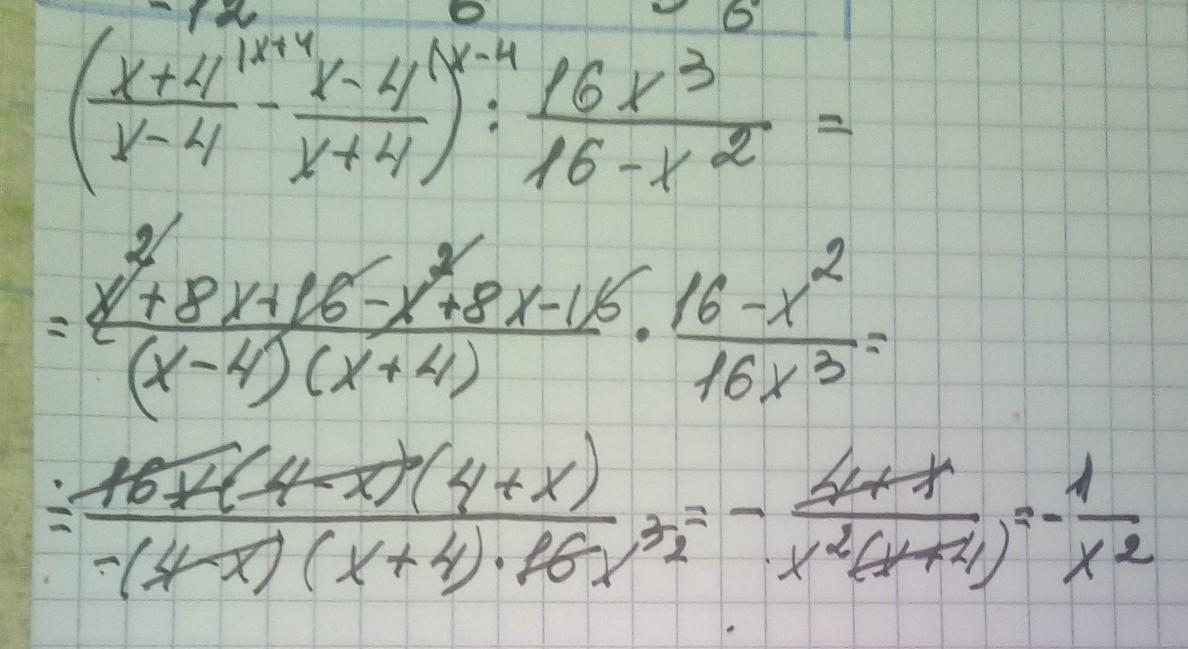 -12 6 6
(\frac{x+4}{x-4}^{|x+4} - \frac{x-4}{x+4}^{(x-4}) : \frac{16x^3}{16-x^2} =
= \frac{x^2+8x+16-x^2+8x-16}{(x-4)(x+4)} · \frac{16-x^2}{16x^3} =
= \frac{16x(4-x)(4+x)}{-(4-x)(x+4)·16x^{3 2}} = -\frac{4+x}{x^2(x+4)} = -\frac{1}{x^2}